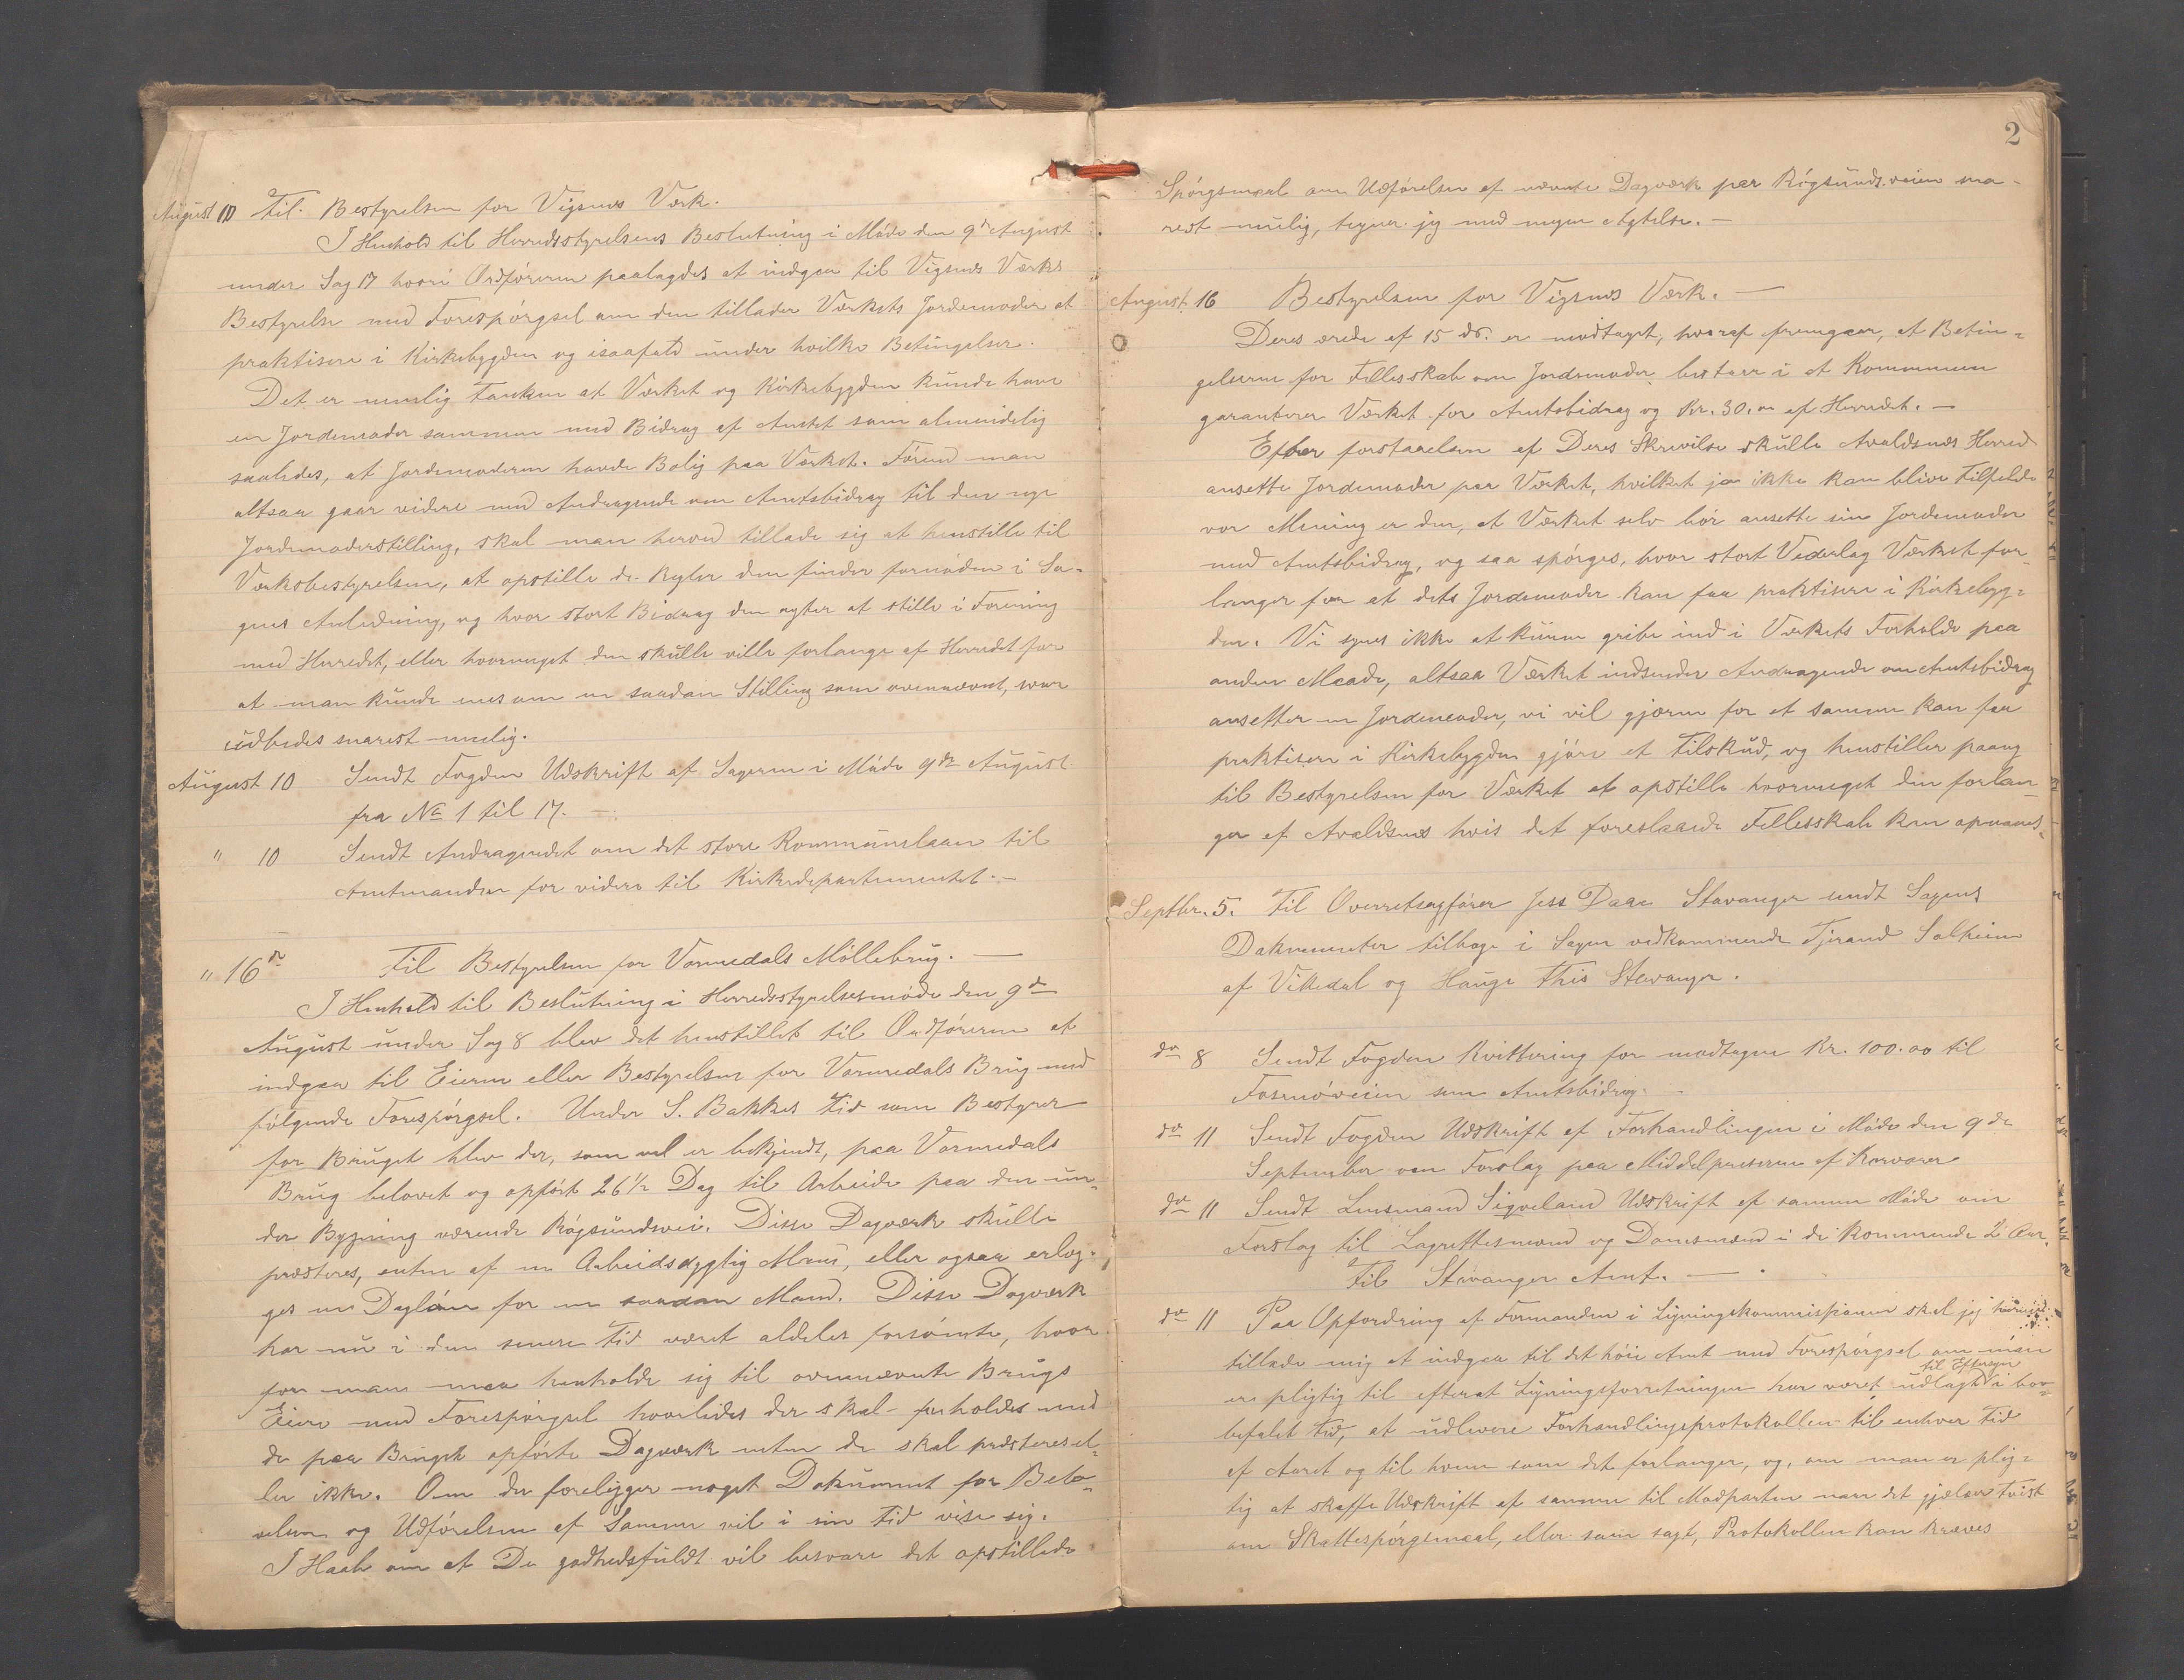 August 10 Til Bestyrelsen for Vigsnes Værk.
I Henhold til Herredsstyrelsens Beslutning i Møde den 9de August
under Sag 17 hvori Ordføreren paalagdes at indgaa til Vigsnes Værks
Bestyrelse med Forespørgsel om den tillader Værkets Jordemoder at
praktisere i Kirkebygden og isaafald under hvilke Betingelser.
Det er nemlig Tanken at Værket og Kirkebygden kunde have
en Jordemoder sammen med Bidrag af Amtet som almindelig
saaledes, at Jordemoderen havde Bolig paa Værket. Förend man
altsaa gaar videre med Andragende om Amtsbidrag til den nye
Jordemoderstilling, skal man herved tillade sig at henstille til
Værksbestyrelsen, at opstille de Regler den finder fornøden i Sa-
gens Anledning, og hvor stort Bidrag den agter at stille i Forening
med Herredet, eller hvormeget den skulle ville forlange af Herredet for
at man kunde enes om en saadan Stilling som ovennævnt, svar
udbedes snarest mulig.
August 10 Sendt Fogden Udskrift af Sagerne i Møde 9de August
fra No 1 til 17. —
" 10 Sendt Andragendet om det store Kommunelaan til
Amtmanden for videre til Kirkedepartementet. —
" 16de Til Bestyrelsen for Vormedals Möllebrug. —
I Henhold til Beslutning i Herredsstyrelsesmöde den 9de
August under Sag 8 blev det henstillet til Ordføreren at
indgaa til Eierne eller Bestyrelsen for Vormedals Brug med
fölgende Forespörgsel. Under S. Bakkes Tid som Bestyrer
for Bruget blev der, som vel er bekjendt, paa Vormedals
Brug belovet og opfört 26½ Dag til Arbeide paa den un-
der Bygning værende Røgsundsvei. Disse Dagværk skulle
præsteres, enten af en Arbeidsdygtig Mand, eller ogsaa erlæg-
ges en Daglön for en saadan Mand. Disse Dagværk
har nu i den senere Tid været aldeles forsömte, hvor
for man maa henholde sig til ovennævnte Brugs
Eiere med Forespørgsel hvorledes der skal forholdes med
de paa Bruget opførte Dagværk enten de skal præsteres el-
ler ikke. Om der foreligger noget Dokument for Belo-
velsen og Udförelsen af Samme vil i sin Tid vise sig.
I Haab om at De godhedsfuldt vil besvare det opstillede
2
Spörgsmaal om Udförelsen af nævnte Dagværk paa Rögsundsveien sna-
rest mulig, tegner jeg med megen Agtelse. —
August 16 Bestyrelsen for Vigsnes Værk. —
Deres ærede af 15 ds. er modtaget, hvoraf fremgaar, at Betin-
gelserne for Fellesskab om Jordemoder bestaar i at Kommunen
garanterer Værket for Amtsbidrag og Kr. 30.00 af Herredet. —
Efter forstaaelsen af Deres Skrivelse skulle Avaldsnes Herred
ansette Jordemoder paa Værket, hvilket jo ikke kan blive Tilfelde
vor Mening er den, at Værket selv bör ansette sin Jordemoder
med Amtsbidrag, og saa spörges, hvor stort Vederlag Værket for-
langer for at dets Jordemoder kan faa praktisere i Kirkebyg-
den. Vi synes ikke at kunne gribe ind i Værkets Forholde paa
anden Maade, altsaa Værket indsender Andragende om Amtsbidrag
ansetter en Jordemoder, vi vil gjerne for at samme kan faa
praktisere i Kirkebygden gjöre et Tilskud, og henstiller paany
til Bestyrelsen for Værket at opstille hvormeget den forlan-
ger af Avaldsnes hvis det foreslaaede Fellesskab kan opnaaes.
Septbr. 5. Til Overretsagfører Jess Daae Stavanger sendt Sagens
Dokumenter tilbage i Sagen vedkommende Tjerand Solheim
af Vikedal og Hauge This Stavanger.
do 8 Sendt Fogden Kvittering for modtagne Kr. 100.00 til
Fosenöveien som Amtsbidrag. —
do 11 Sendt Fogden Udskrift af Forhandlingen i Möde den 9de
September om Forslag paa Middelpriserne af Kornvarer
do 11 Sendt Lensmand Sigveland Udskrift af samme Möde om
Forslag til Lagrettesmænd og Domsmænd i de kommende 2 Aar.
Til Stavanger Amt. —
do 11 Paa Opfordring af Formanden i Ligningskommissionen skal jeg herved
tillade mig at indgaa til det höie Amt med Forespörgsel om man
er pligtig til efterat Ligningsforretningen har været udlagt til Eftersyn i lov-
befalet Tid, at udlevere Forhandlingsprotokollen til enhver Tid
af Aaret og til hvem som det forlanger, og, om man er plig-
tig at skaffe Udskrift af samme til Modparten naar det gjælder Tvist
om Skattespörgsmaal, eller som sagt, Protokollen kan kræves